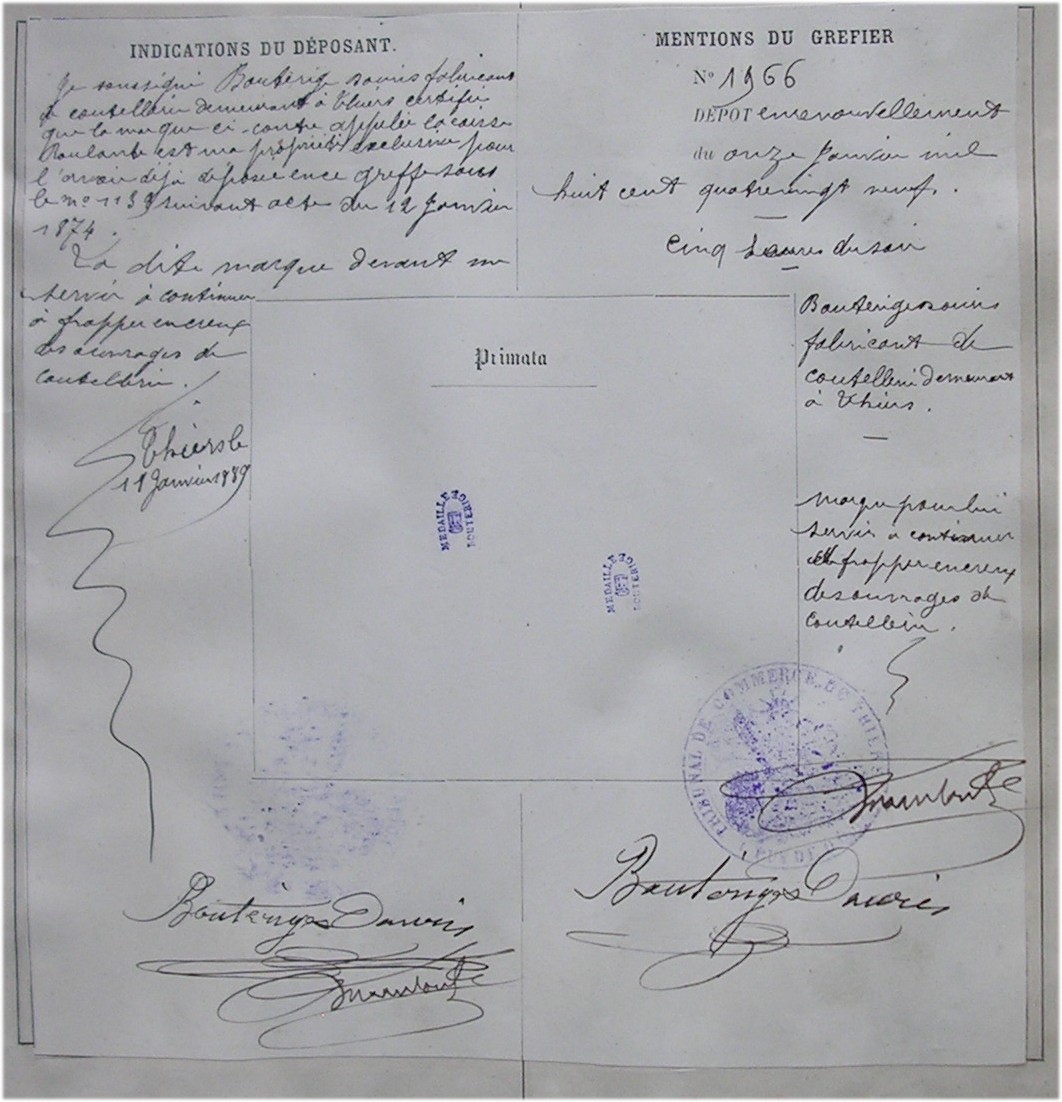 INDICATIONS DU DÉPOSANT.
Je soussigné Boutérige sauris fabricant
de coutellerie demeurant à Thiers certifie
que la marque ci-contre appelée la caisse
Roulante est ma propriété exclusive pour
l'avoir déjà déposée en ce greffe sous
le no 1139 suivant acte du 12 Janvier
1874.
La dite marque devant me
servir à continuer
à frapper en creux
des ouvrages de
coutellerie.
Thiers le
11 Janvier 1889
MENTIONS DU GREFIER
No 1966
DÉPOT en renouvellement
du onze Janvier mil
huit cent quatre vingt neuf.
cinq heures du soir
Primata
Bouterige sauris
fabricant de
coutellerie demeurant
à Thiers.
marque pour lui
servir à continuer
à frapper en creux
des ouvrages de
coutellerie.
MEDAILLE
BOUTERIGE
MEDAILLE
BOUTERIGE
TRIBUNAL DE COMMERCE DE THIERS
PUY DE D
Bouteriges Dauris
Bouteriges Dauris